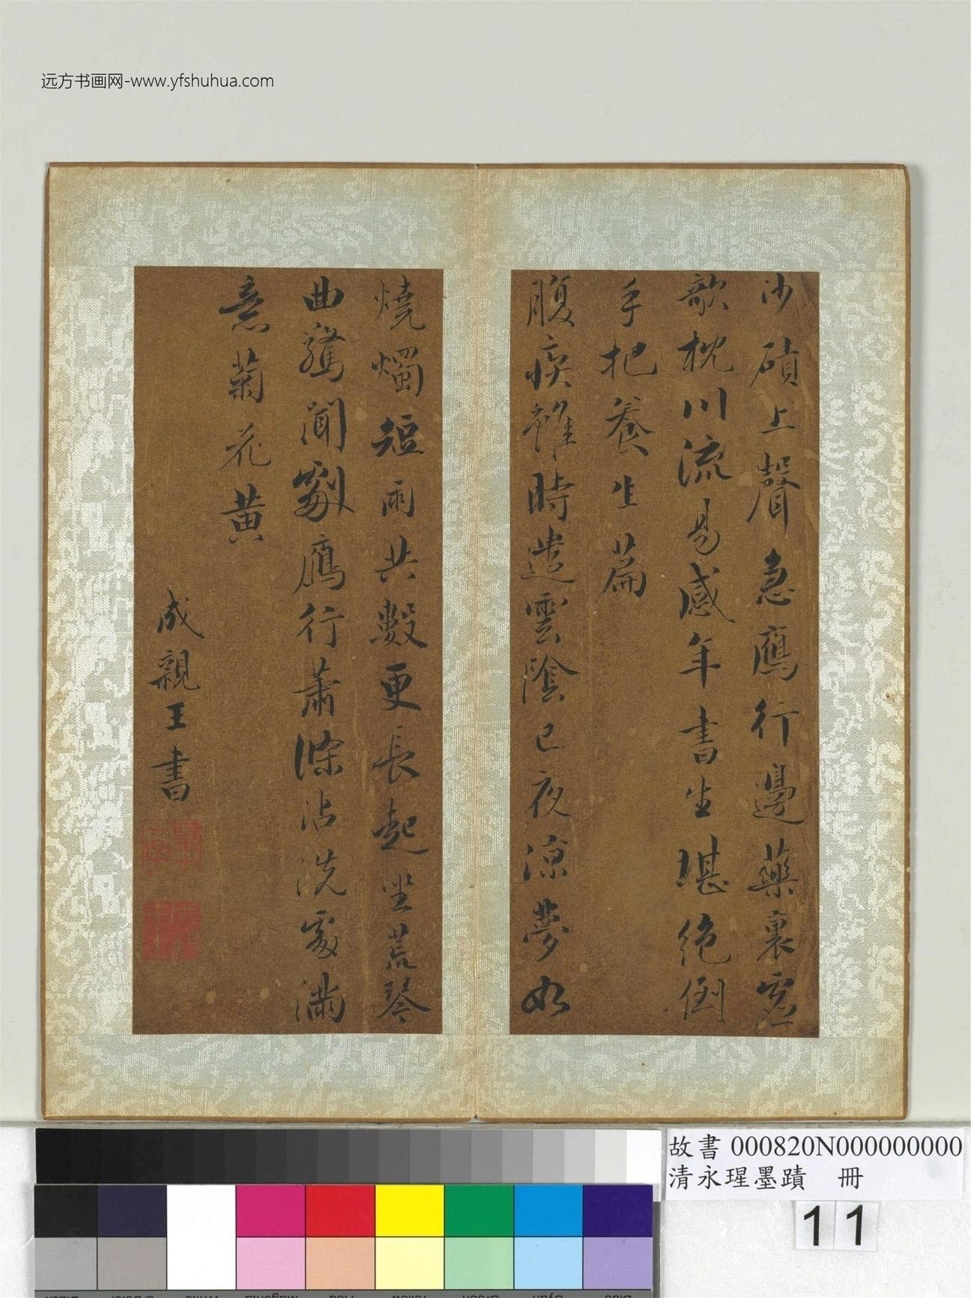 远方书画网-www.yfshuhua.com
沙磧上聲急鴈行邊藥裹虛
欹枕川流易感年書生堪絕倒
手把養生篇
腹疾雖時遣雲陰已夜涼夢如
燒燭短雨共數更長起坐荒琴
曲驚聞劉鴈行蕭條沾洗處滿
意菊花黃
成親王書
故書 000820N000000000
清永瑆墨蹟 冊
11